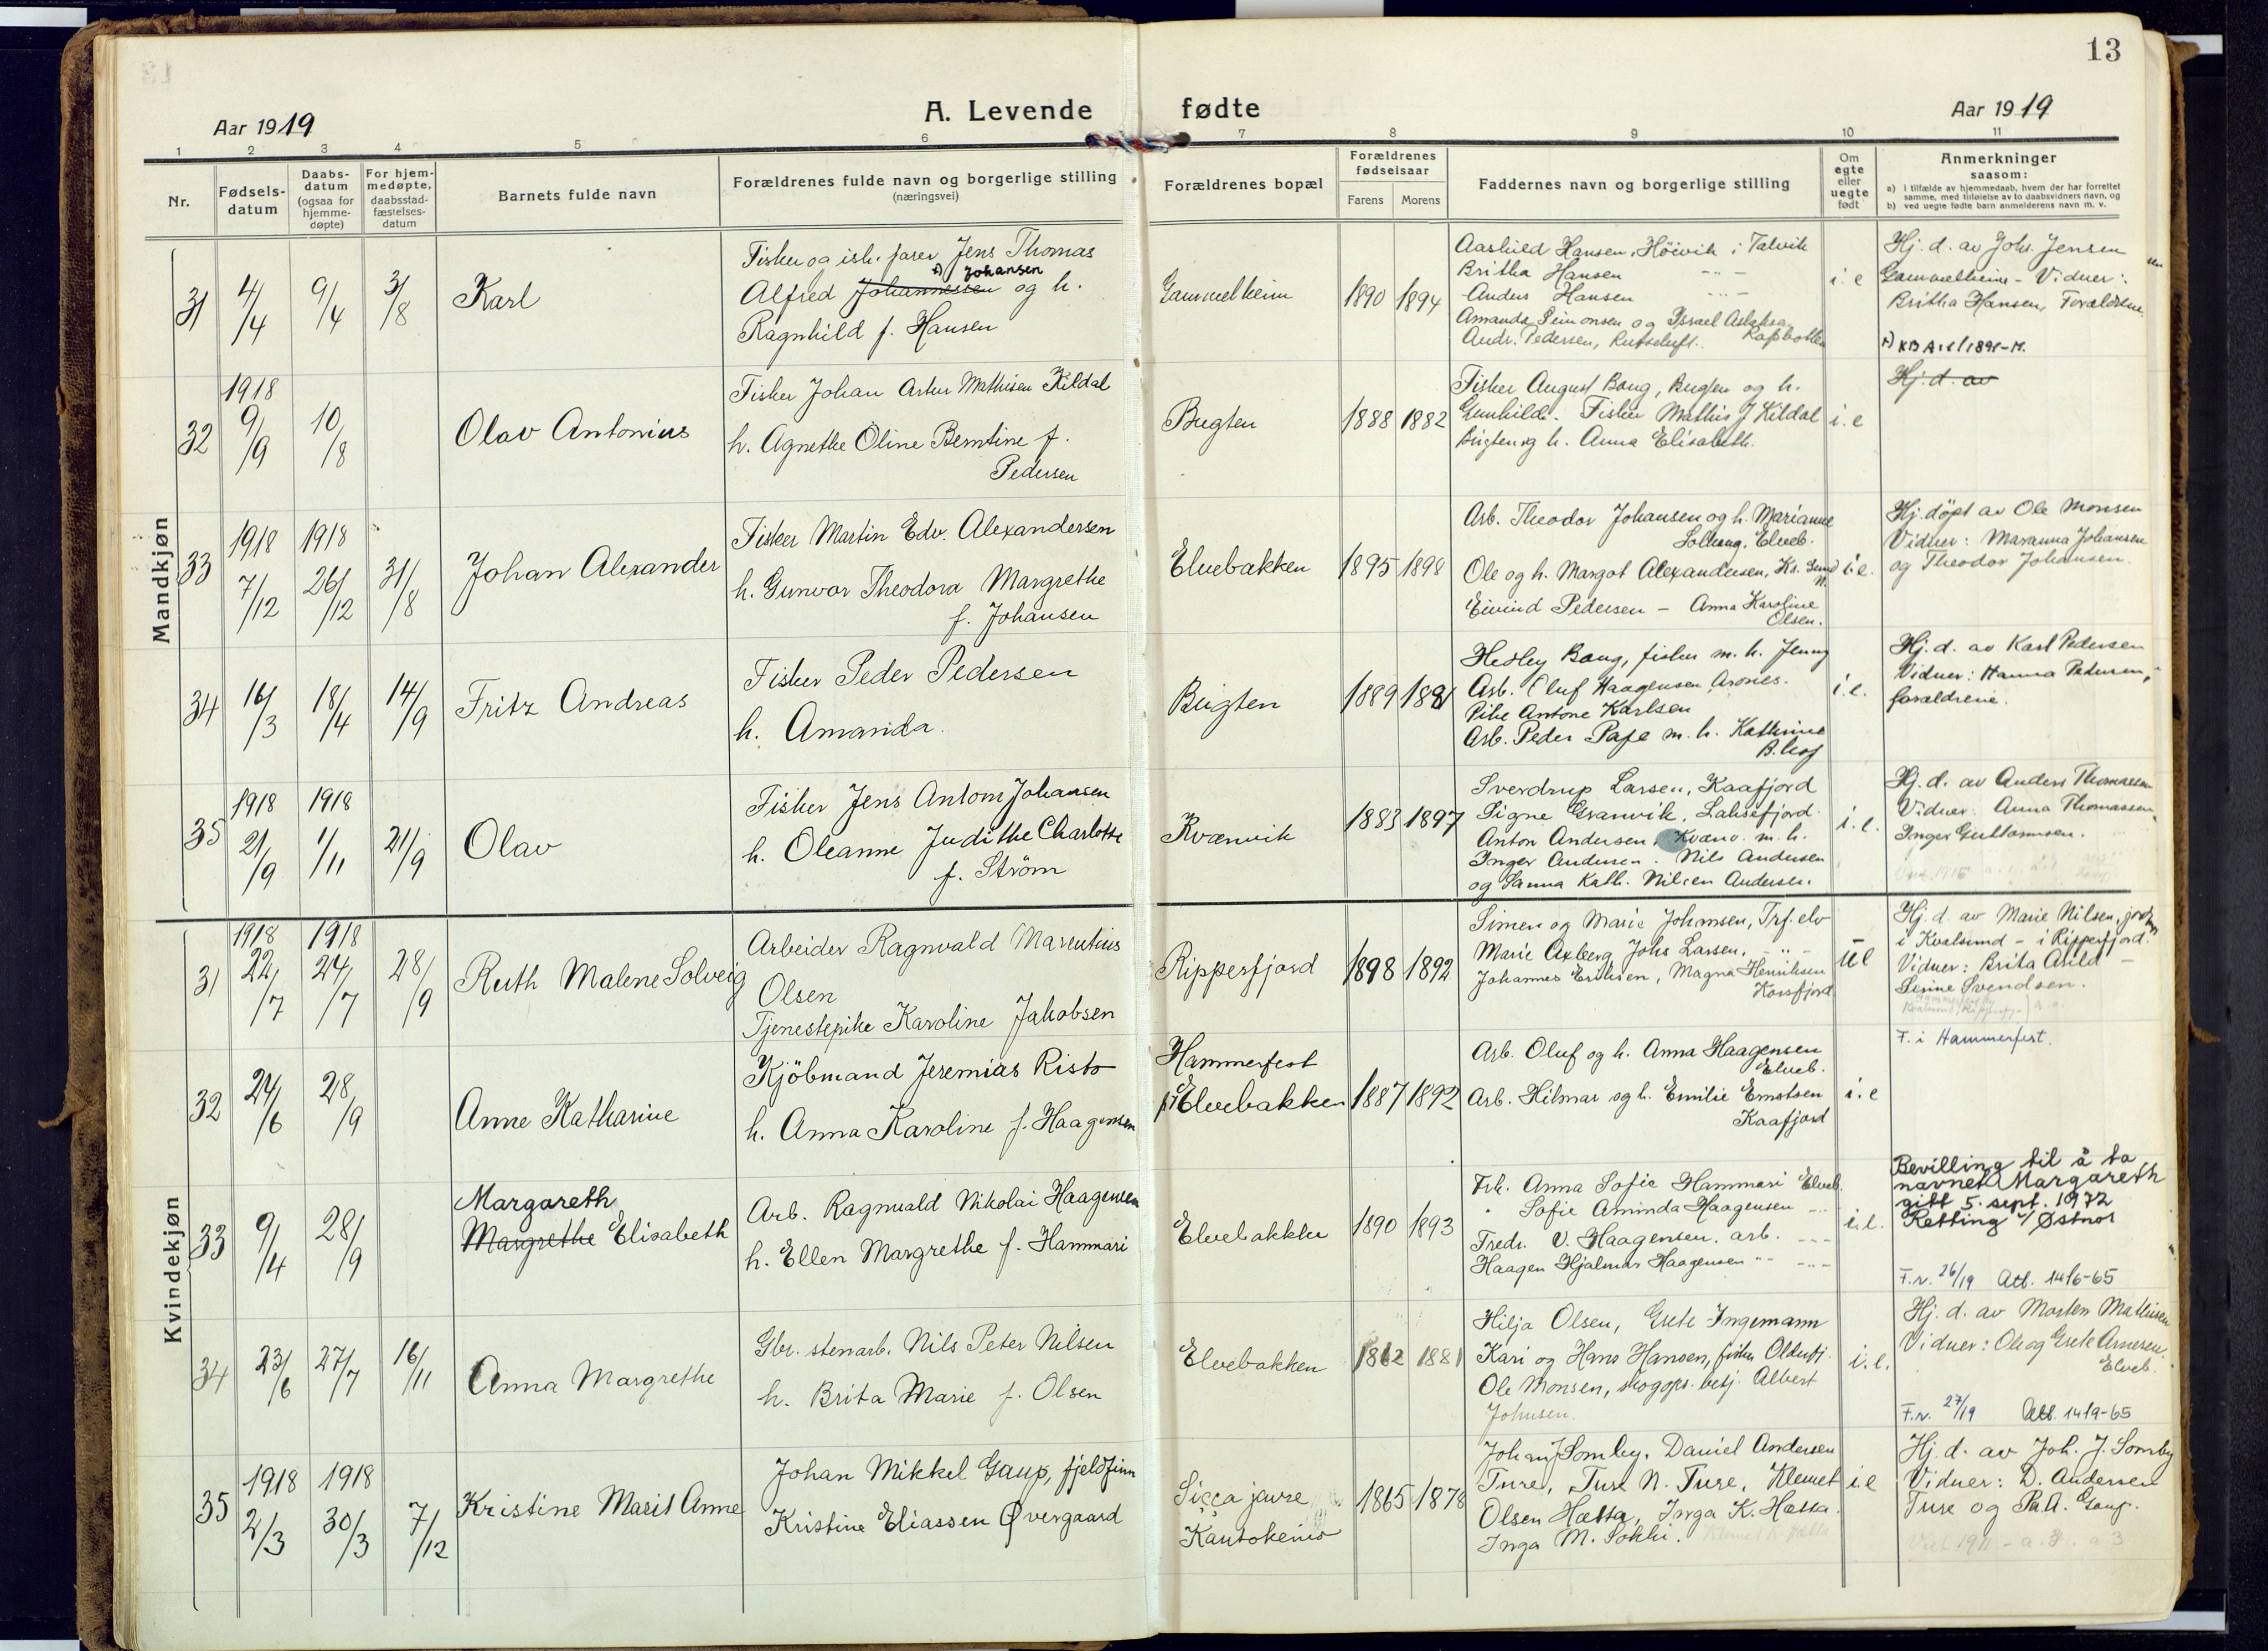 13
Aar 1919
A. Levende fødte
Aar 1919
1 2 3 4 5 6 7 8 9 10 11
Nr.
Fødsels-
datum
Daabs-
datum
(ogsaa for
hjemme-
døpte)
For hjem-
medøpte,
daabsstad-
fæstelses-
datum
Barnets fulde navn
Forældrenes fulde navn og borgerlige stilling
(næringsvei)
Forældrenes bopæl
Forældrenes
fødselsaar
Farens Morens
Faddernes navn og borgerlige stilling
Om
egte
eller
uegte
født
Anmerkninger
saasom:
a) i tilfælde av hjemmedaab, hvem der har forrettet
samme, med tilføielse av to daabsvidners navn, og
b) ved uegte fødte barn anmelderens navn m. v.
Mandkjøn
31
4/4
9/4
3/8
Karl
Fisker og ish. farer Jens Thomas
x) Johansen
Alfred Johannessen og h.
Ragnhild f. Hansen
Gammelheim
1890 1894
Aashild Hansen, Höivik i Talvik
Britha Hansen
Anders Hansen
Amanda Simonsen og Israel
Andr. Pedersen
i. e
Hj. d. av Johs. Jensen
Gammelheim - Vidner:
Britha Hansen, Forældrene
32
1918
9/9
10/8
Olav Antonius
Fisker Johan Artur Mathisen Kildal
h. Agnethe Oline Berntine f.
Pedersen
Bugten
1888 1882
Fisker August Bang, Bugten og h.
Gunhild. Fisker Mathis J Kildal
Bugten og h. Anna Elisabeth.
i. e
Hj. d. av
33
1918
7/12
1918
26/12
31/8
Johan Alexander
Fisker Martin Edv. Alexandersen
h. Gunvor Theodora Margrethe
f. Johansen
Elvebakken
1895 1898
Arb. Theodor Johansen og h. Marianne
Elveb.
Ole og h. Margot Alexandersen, Kr. Sund
N.
Eivind Pedersen - Anna Karoline
Olsen.
i. e.
Hj. döpt av Ole Monsen
Vidner: Maranna Johansen
og Theodor Johansen.
34
16/3
18/4
14/9
Fritz Andreas
Fisker Peder Pedersen
h. Amanda.
Bugten
1889 1891
Hedley Bang, fisker m. h. Jenny
Arb. Oluf Haagensen Arones.
Pike Antone Karlsen
Arb. Peder Pape m. h. Kathrine
i. e.
Hj. d. av Karl Pedersen
Vidner: Hanna Pedersen,
forældrene.
35
1918
21/9
1918
1/11
21/9
Olav
Fisker Jens Antom Johansen
h. Oleanne Judithe Charlotte
f. Ström
Kvænvik
1883 1897
Sverdrup Larsen, Kaafjord
Signe Granvik, Laksefjord
Anton Andersen, Kvænv. m. h.
Inger Andersen. Nils Andersen
og Sanna Kath. Nilsen Andersen.
i. e.
Hj. d. av Anders Thomassen
Vidner: Anna Thomassen,
Inger Guttormsen.
Kvindekjøn
31
1918
22/7
1918
24/7
28/9
Ruth Malene Solveig
Arbeider Ragnvald Marentius
Olsen
Tjenestepike Karoline Jakobsen
Ripperfjord
1898 1892
Simen og Marie Johansen, Trf. elv
Marie Axberg, Johs Larsen,
Johannes Eriksen, Magna Henriksen
Korsfjord
ue
Hj. d. av Marie Nilsen,
i Kvalsund - i Ripperfjord.
Vidner: Brita Arild -
Senne Svendsen.
32
24/6
28/9
Anne Katharine
Kjöbmand Jeremias Risto
h. Anna Karoline f. Haagensen
Hammerfest
pt Elvebakken
1887 1892
Arb. Oluf og h. Anna Haagensen
Elveb.
Arb. Hilmar og h. Emilie Ernstsen
Kaafjord
i. e
F. i Hammerfest.
33
9/4
28/9
Margareth
Margrethe Elisabeth
Arb. Ragnvald Nikolai Haagensen
h. Ellen Margrethe f. Hammari
Elvebakken
1890 1893
Frk. Anna Sofie Hammari Elveb.
" Sofie Aminda Haagensen
Fredr. V. Haagensen. arb.
Haagen Hjalmar Haagensen
i. e.
Bevilling til å ta
navnet Margareth
gitt 5. sept. 1972
Retting v/ Østnor
F.n. 26/19 Att. 14/6-65
34
23/6
27/7
16/11
Anna Margrethe
Gbr. stenarb. Nils Peter Nilsen
h. Brita Marie f. Olsen
Elvebakken
1862 1881
Hilja Olsen, Grete Ingemann
Kari og Hans Hansen, fisker Olderfj.
Ole Monsen, skogops. betj. Albert
Johnsen.
i. e.
Hj. d. av Morten Mathisen
Vidner: Ole og Grete Arnesen
Elveb.
F.n. 27/19 Att. 14/9-65
35
1918
2/3
1918
30/3
7/12
Kristine Marit Anne
Johan Mikkel Gaup, fjeldfinn
Kristine Eliassen Øvergaard
Siccajavre
Kautokeino
1865 1878
Johan J Somby. Daniel Andersen
Ture, Ture N. Ture, Klemet
Olsen Hætta, Inga K. Hætta.
Inga M. Sokki.
i e
Hj. d. av Joh. J. Somby
Vidner: D. Andersen
Ture og P. A. Gaup.